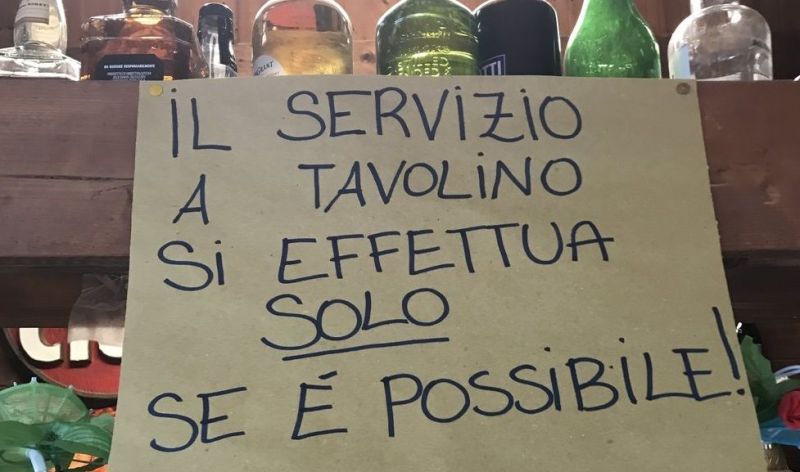 IL SERVIZIO
A TAVOLINO
SI EFFETTUA
SOLO
SE É POSSIBILE!